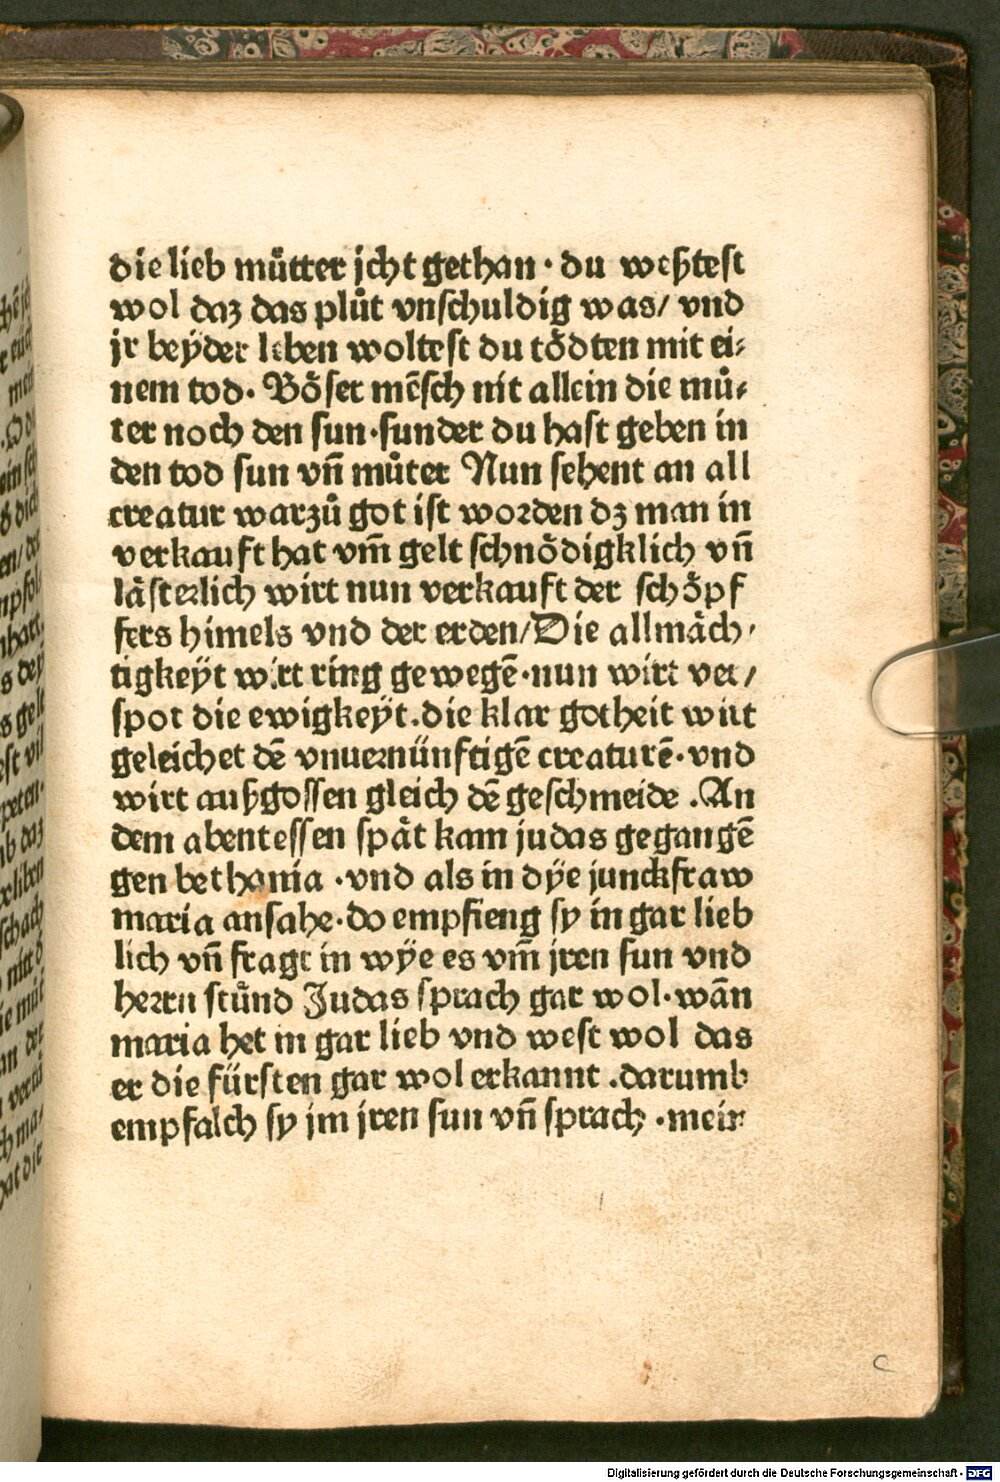 die lieb mütter jcht gethan · du weßtest
wol daz das plůt vnschuldig was/ vnd
jr beÿder leben woltest du tödten mit ei⸗
nem tod · Böser mēsch nit allein die mů⸗
ter noch den sun · sunder du hast geben in
den tod sun vñ můter Nun sehent an all
creatur warzů got ist worden dz man in
verkauft hat vm̄ gelt schnödigklich vñ
lästerlich wirt nun verkauft der schöpf
fers himels vnd der erden/ Die allmäch⸗
tigkeÿt wirt ring gewegē · nun wirt ver/
spot die ewigkeÿt . die klar gotheit wirt
geleichet dē vnuernünftigē creaturē · vnd
wirt außgossen gleich dē geschmeide . An
dem abentessen spät kam judas gegangē
gen bethania · vnd als in dÿe junckfraw
maria ansahe · do empfieng sy in gar lieb
lich vñ fragt in wÿe es vm̄ jren sun vnd
herrn stünd Judas sprach gar wol · wān
maria het in gar lieb vnd west wol das
er die fürsten gar wol erkannt . darumb
empfalch sy jm jren sun vñ sprach · mein
c
Digitalisierung gefördert durch die Deutsche Forschungsgemeinschaft - DFG